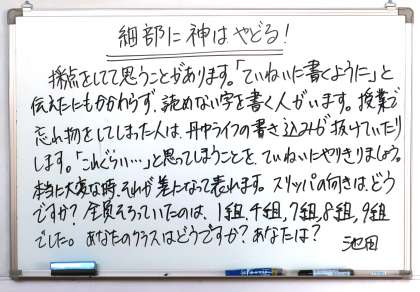 細部に神はやどる!
採点をしてて思うことがあります。「ていねいに書くように」と
伝えたにもかかわらず、読めない字を書く人がいます。授業で
忘れ物をしてしまった人は、丹中ライフの書き込みが抜けていたり
します。「これぐらい…」と思ってしまうことを、ていねいにやりきりましょう。
本当に大変な時、それが差になって表れます。スリッパの向きは、どう
ですか?全員そろっていたのは、1組、4組、7組、8組、9組
でした。あなたのクラスはどうですか?あなたは?
池田